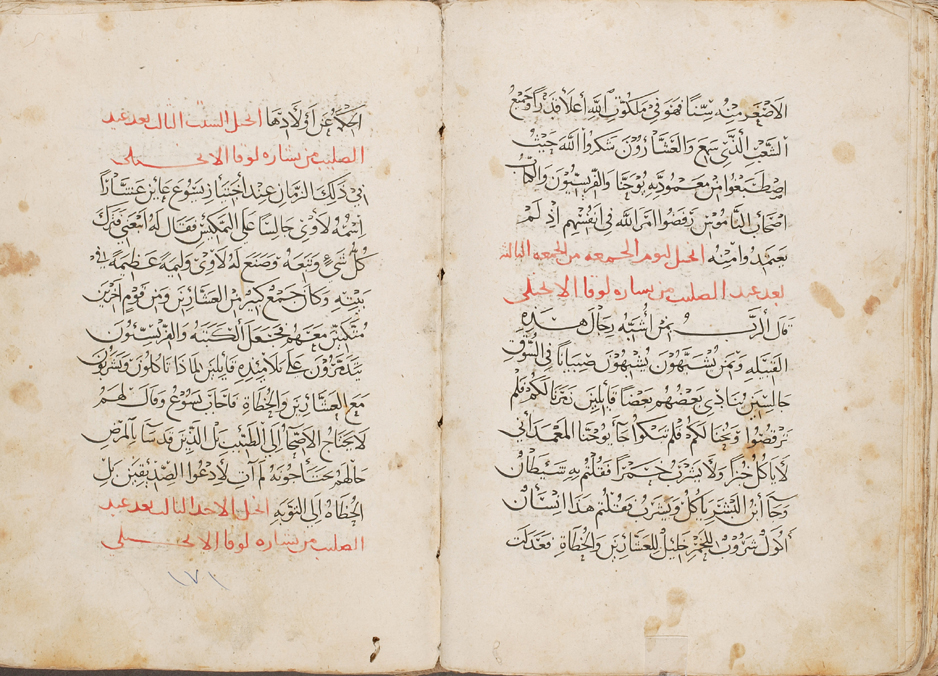 الاصغر منه سنًا فهو في ملكوت الله اعلا قدرًا وجميع
الشعب الذي سمع والعشارون شكروا الله حيث
اصطبغوا من معموديه يوحنا والفريسيون والكتاب
اصحاب الناموس رفضوا امر الله في انفسهم اذ لم
يعمدوا منه انجيل يوم الجمعه من الجمعه الثالثه
بعد عيد الصليب من بشاره لوقا الانجيلي
قال الرب بمن اشبه رجال هذه
القبيله وبمن يشبهون يشبهون صبيانًا في السوق
جالسين ينادي بعضهم بعضا قايلين زمرنا لكم فلم
ترقصوا ونحنا لكم فلم تبكوا جا يوحنا المعمداني
لا ياكل خبزًا ولا يشرب خمرًا فقلتم به شيطان
وجا ابن البشر ياكل ويشرب فقلتم هذا انسان
اكول شروب للخمر خليل للعشارين والخطاة فعدلت
الحكمة عن اولادها انجيل السبت الثالث بعد عيد
الصليب من بشاره لوقا الانجيلي
في ذلك الزمان عند اجتياز يسوع عاين عشارًا
اسمه لاوى جالسًا على المكس فقال له اتبعني فترك
كل شيء وتبعه وصنع له لاوى وليمه عظيمه في
بيته وكان جمع كثير من العشارين ومن قوم اخرين
متكيين معهم فجعل الكتبه والفريسيون
يتذمرون على تلاميذه قايلين لماذا تاكلون وتشربون
مع العشارين والخطاة فاجاب يسوع وقال لهم
لا يحتاج الاصحا الى الطبيب بل الذين قد سا بالمرض
حالهم يحتاجونه لم ات لادعوا الصديقين بل
الخطاه الى التوبه انجيل الاحد الثالث بعد عيد
الصليب من بشاره لوقا الانجيلي
١٧١